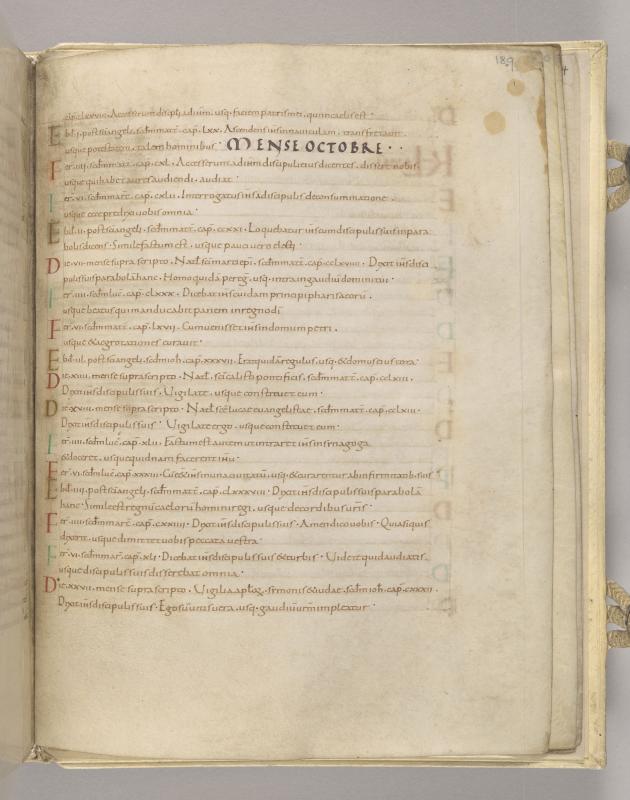 189
clxxxvii. Accesserunt discipuli ad ihm. usq. faciem patris mei, qui in caelis est.
Ebd. ii. post sci angeli. scdm marc. cap. lxx. Ascendens ihs in naviculam, transfretavit.
usque potestatem talem hominibus. MENSE OCTOBRE.
Fer. iiii. scdm mat. cap. cxl. Accesserunt ad ihm discipuli eius dicentes, dissere nobis.
usque qui habet aures audiendi. audiat.
Fer. vi. scdm marc. cap. cxlii. Interrogatus ihs a discipulis de consummatione.
usque ecce predixi vobis omnia.
Ebd. iii. post sci angeli. scdm mat. cap. ccxxi. Loquebatur ihs cum discipulis suis in para
bolis dicens. Simile factum est. usque pauci vero electi.
Die. vii. mense supra scripto. Natl. sci marci epi. scdm mat. cap. cclxviii. Dixit ihs disci
pulis suis parabolā hanc. Homo quidā peregr. usq. intra in gaudiū domini tui.
Fer. iiii. scdm luc. cap. clxxx. Dicebat ihs cuidam principi pharisaeorū.
usque beatus qui manducabit panem in regno di
Fer. vi. scdm mat. cap. lxvii. Cum venisset ihs in domum petri.
usque & aegrotationes curavit.
Ebd. iiii. post sci angeli. scdm ioh. cap. xxxvii. Erat quidā regulus. usq. & domus eius tota.
Die. xiiii. mense supra scripto. Natl. sci calisti pontificis. scdm mat. cap. cclxiii.
Dixit ihs discipulis suis. Vigilate. usque constituet eum.
Die. xviii. mense supra scripto. Natl. sci lucae evangelistae. scdm mat. cap. cclxiii.
Dixit ihs discipulis suis. Vigilate ergo. usque constituet eum.
Fer. iiii. scdm luc. cap. xlii. Factum est autem ut intraret ihs in synagoga
& doceret. usque quidnam facerent ihū.
Fer. vi. scdm luc. cap. xxxiii. Cū esset ihs in una civitatū. usq. & curarentur ab infirmitatib. suis.
Ebd. iiii. post sci angeli. scdm mat. cap. clxxxviii. Dixit ihs discipulis suis parabolā
hanc. Simile est regnū caelorū homini regi. usque de cordibus uris.
Fer. iiii. scdm marc. cap. cxxiiii. Dixit ihs discipulis suis. Amen dico vobis. Quia si quis
dixerit. usque dimittet vobis peccata vestra.
Fer. vi. scdm marc. cap. xli. Dicebat ihs discipulis suis & turbis. Videte quid audiatis.
usque discipulis suis disserebat omnia.
Die. xxvii. mense supra scripto. Vigilia aplorū. symonis & iudae. scdm ioh. cap. cxxxii.
Dixit ihs discipulis suis. Ego sum vitis vera. usq. gaudiū urm impleatur.